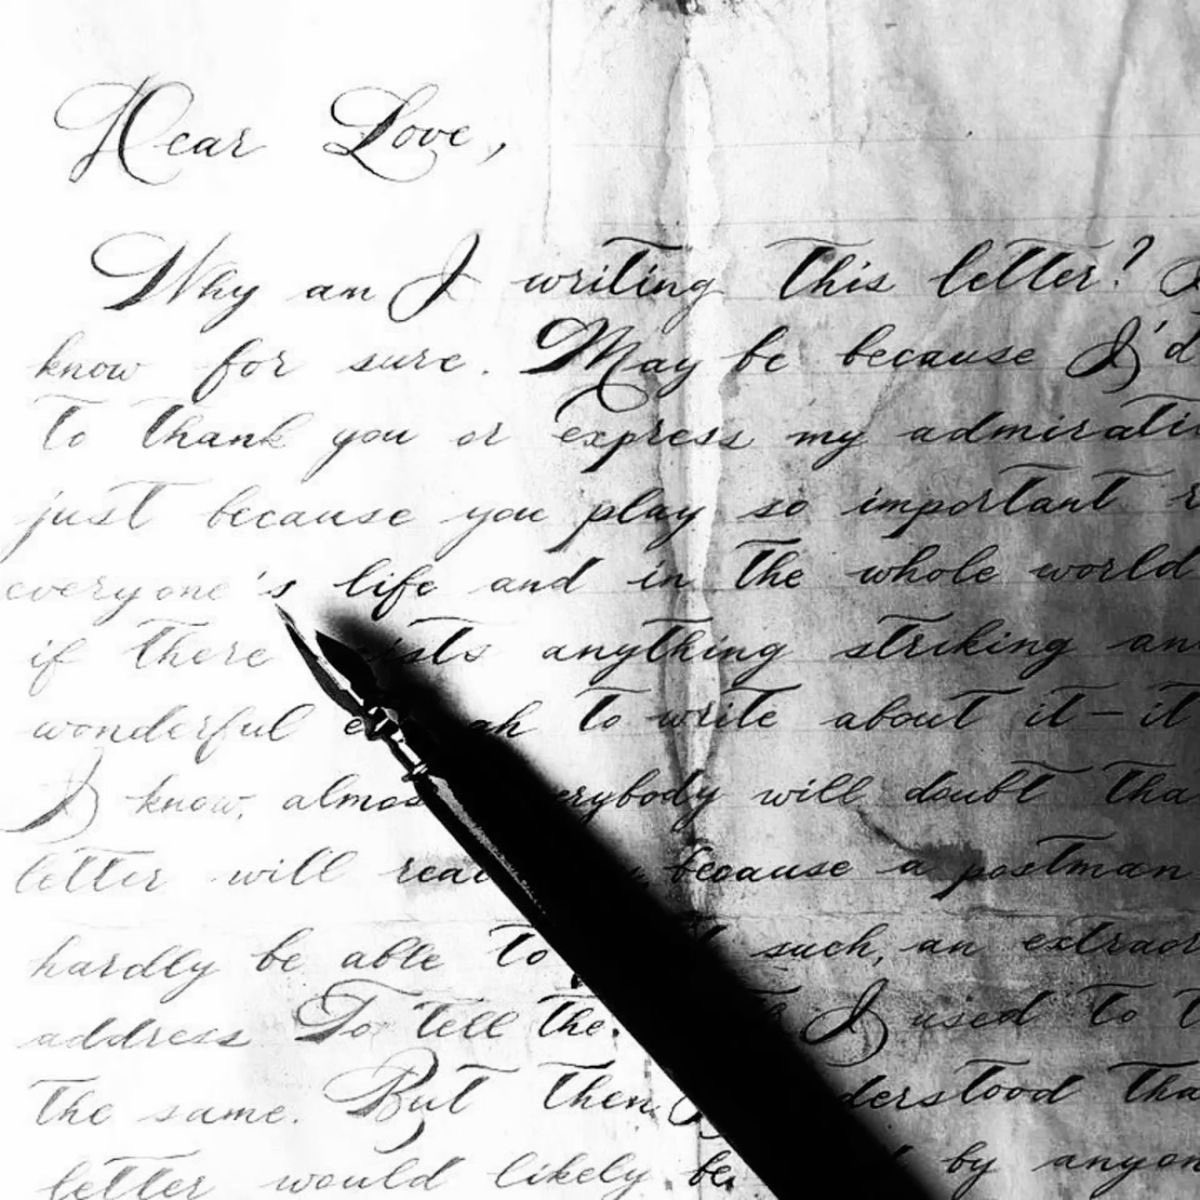 Dear Love,
Why am I writing this letter? I
know for sure. May be because I'd
to thank you or express my admirati
just because you play so important r
everyone's life and in the whole world
if there ists anything striking an
wonderful e gh to write about it - it
I know, almos erybody will doubt tha
letter will reac because a postman
hardly be able to such, an extraor
address. To tell the I used to t
the same. But then derstood tha
letter would likely be by anyon